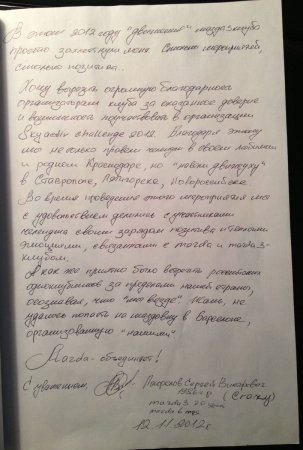 В этом 2012 году "движения" мазда3клуба
просто захлестнули меня. Столько мероприятий
столько позитива..
Хочу выразить огромную благодарность
организаторам клуба за оказанное доверие
и возможность поучаствовать в организации
Skyactiv challenge 2012. Благодаря этому
мы не только провели челиндж в своём любимом
и родном Краснодаре, но "навели движуху"
в Ставрополе, Пятигорске, Новороссийске.
Во время проведения этого мероприятия мы
с удовольствием делились с участниками
челинджа своим зарядом позитива и тёплыми
эмоциями, связанными с mazda и mazda3-
клубом.
А как же приятно было встретить российских
одноклубников за пределами нашей страны,
осознавая, что "мы везде". Жаль, не
удалось попасть на маздовку в Берлине,
организованную "нашими".
Mazda-объединяет!
С уважением, Сергей Викторович
1986 г.р. (Crazzy)
mazda 3 2.0
mazda 6 mps
12.11.2012г.